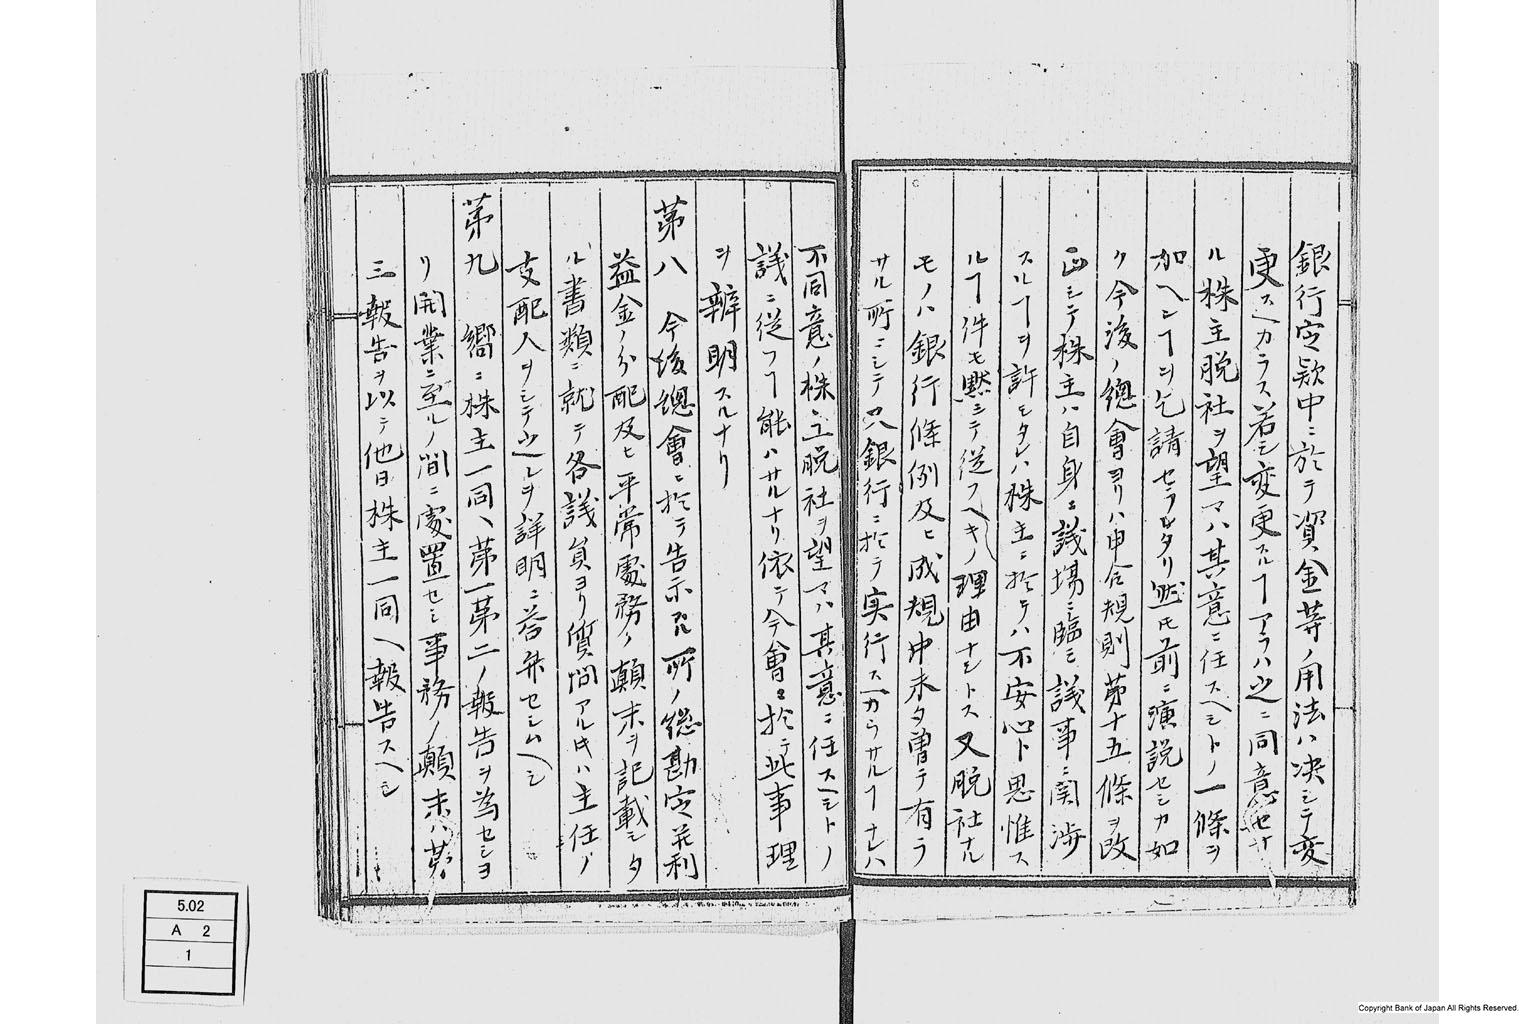 銀行定款中ニ於テ資金等ノ用法ハ決シテ変
更スヘカラス若シ変更スルヿアラハ之ニ同意セサ
ル株主脱社ヲ望マハ其意ニ任スヘシトノ一條ヲ
加ヘンヿヲ乞請セラレタリ然ルニ前ニ演説セシカ如
ク今後ノ總會ヨリハ申合規則第十五條ヲ改
正シテ株主ハ自身ニ議場ニ臨ミ議事ニ関渉
スルヿヲ許シタレハ株主ニ於テハ不安心ト思惟ス
ルヿ件モ黙シテ従フヘキノ理由ナシトス又脱社ナル
モノハ銀行條例及ヒ成規中未タ曽テ有ラ
サル所ニシテ只銀行ニ於テ実行スヘカラサルヿナレハ
不同意ノ株主脱社ヲ望マハ其意ニ任スヘシトノ
議ニ従フヿ能ハサルナリ依テ今會ニ於テ此事理
ヲ辨明スルナリ
第八 今後總會ニ於テ告示スル所ノ総勘定并利
益金ノ分配及ヒ平常處務ノ顛末ヲ記載シタ
ル書類ニ就テ各議員ヨリ質問アルキハ主任ノ
支配人ヲシテ之レヲ詳明ニ答弁セシムヘシ
第九 嚮ニ株主一同ヘ第一第二ノ報告ヲ為セシヨ
リ開業ニ至ルノ間ニ處置セシ事務ノ顛末ハ第
三報告ヲ以テ他日株主一同ヘ報告スヘシ
5.02
A 2
1
Copyright Bank of Japan All Rights Reserved.